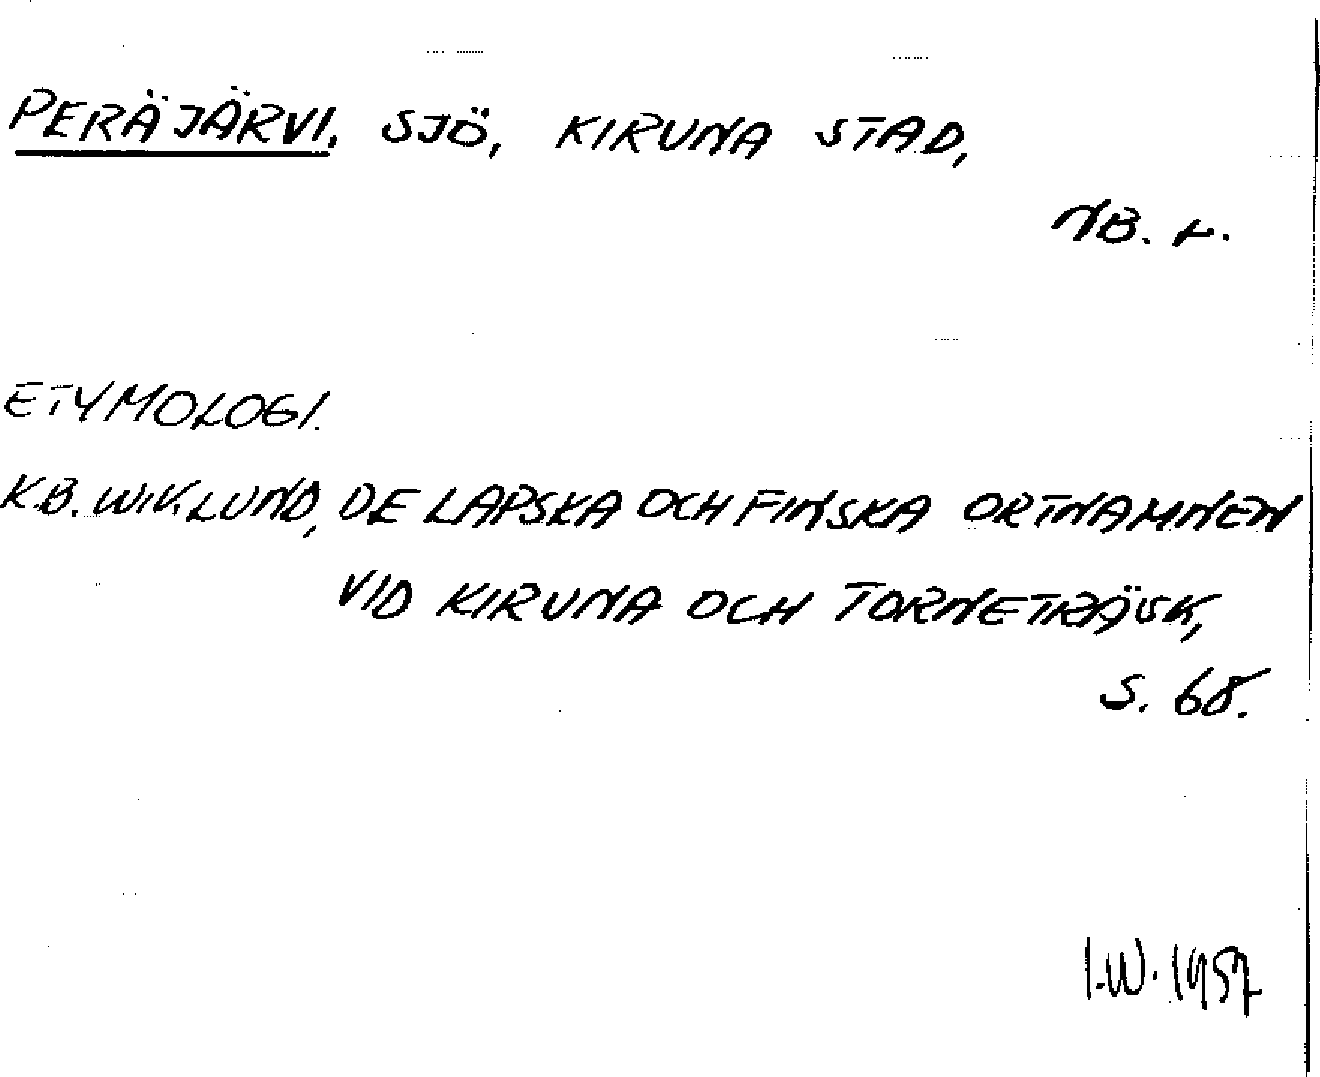 PERÄJÄRVI, SJÖ, KIRUNA STAD,
NB. L.
ETYMOLOGI.
K.B. WIKLUND, DE LAPSKA OCH FINSKA ORTNAMNEN
VID KIRUNA OCH TORNETRÄSK,
S. 68.
I.W. 1957